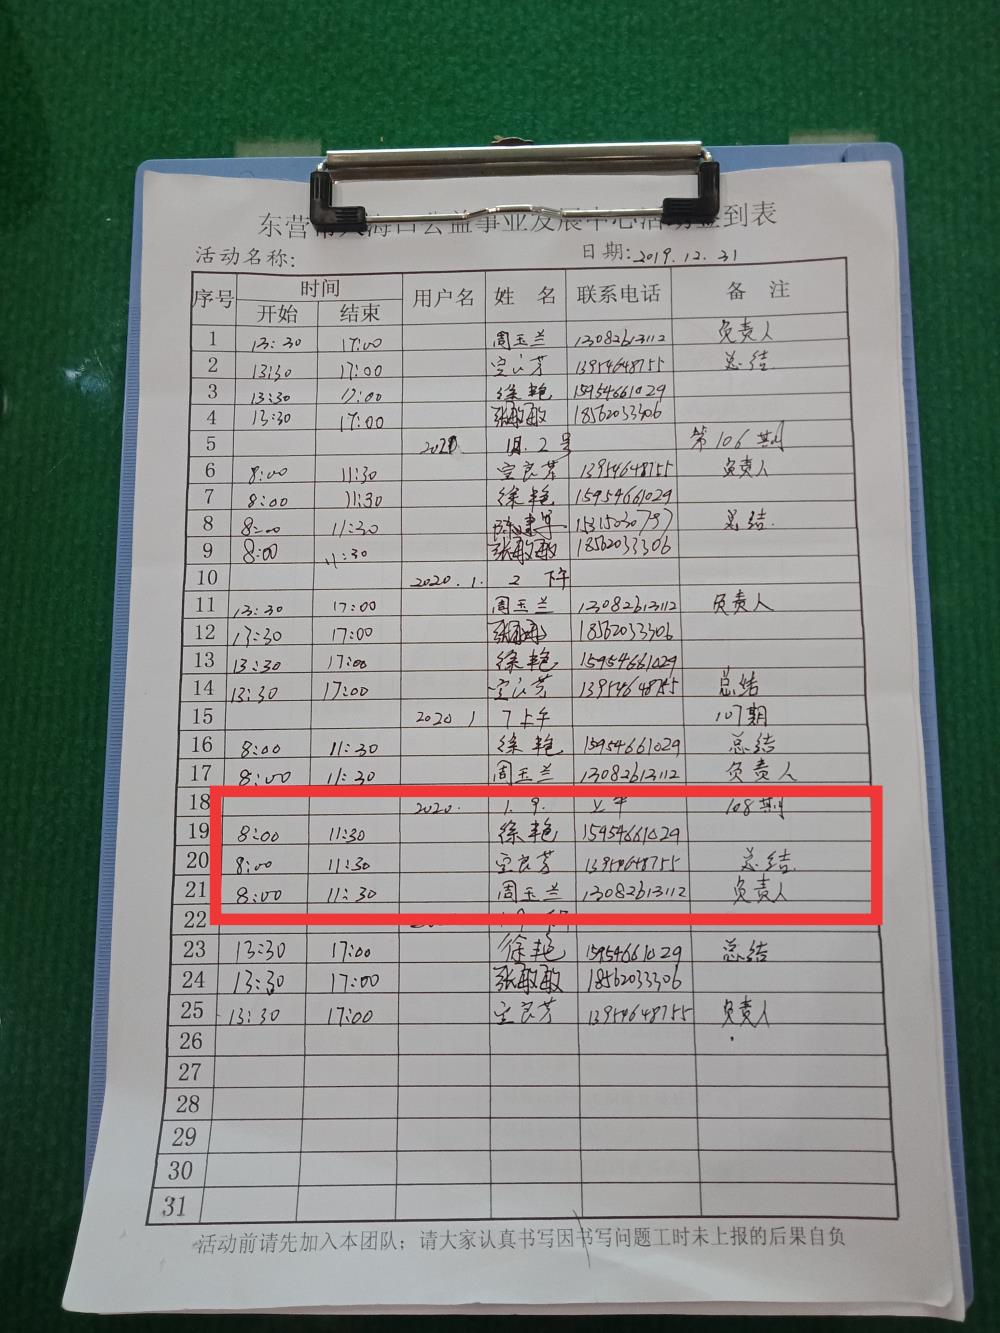 东营市大海口公益事业发展中心活动签到表
活动名称: 日期: 2019.12.31
序号 时间 用户名 姓 名 联系电话 备 注
开始 结束
1 13:30 17:00 周玉兰 13082613112 负责人
2 13:30 17:00 良芳 13954648755 总结
3 13:30 17:00 徐艳 15954661029
4 13:30 17:00 张敏敏 18562033306
5 2020 1月.2号 第106期
6 8:00 11:30 良芳 13954648755 负责人
7 8:00 11:30 徐艳 15954661029
8 8:00 11:30 陈建军 总结
9 8:00 11:30 张敏敏 18562033306
10 2020.1. 2 下午
11 13:30 17:00 周玉兰 13082613112 负责人
12 13:30 17:00 张敏敏 18562033306
13 13:30 17:00 徐艳 15954661029
14 13:30 17:00 良芳 13954648755 总结
15 2020 1 7上午 107期
16 8:00 11:30 徐艳 15954661029 总结
17 8:00 11:30 周玉兰 13082613112 负责人
18 2020. 1.9. 上午 108期
19 8:00 11:30 徐艳 15954661029
20 8:00 11:30 良芳 13954648755 总结
21 8:00 11:30 周玉兰 13082613112 负责人
22
23 13:30 17:00 徐艳 15954661029 总结
24 13:30 17:00 张敏敏 18562033306
25 13:30 17:00 良芳 13954648755 负责人
26
27
28
29
30
31
活动前请先加入本团队；请大家认真书写因书写问题工时未上报的后果自负